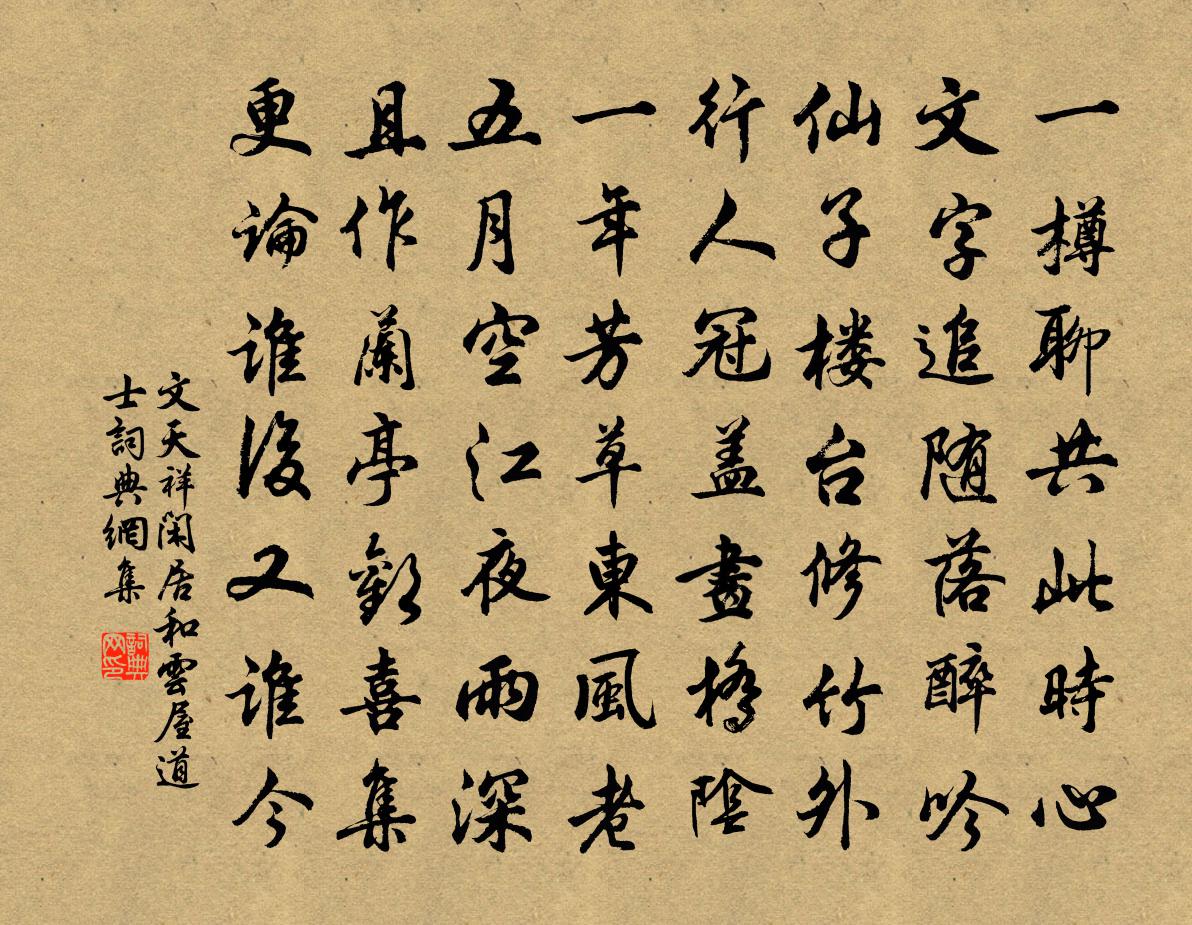 一樽聊共此時心
文字追随落醉吟
仙子楼台修竹外
行人冠盖畫橋陰
一年芳草東風老
五月空江夜雨深
且作蘭亭歡喜集
更論誰後又誰今
文天祥閑居和雲屋道
士詞典網集
詞典
网印